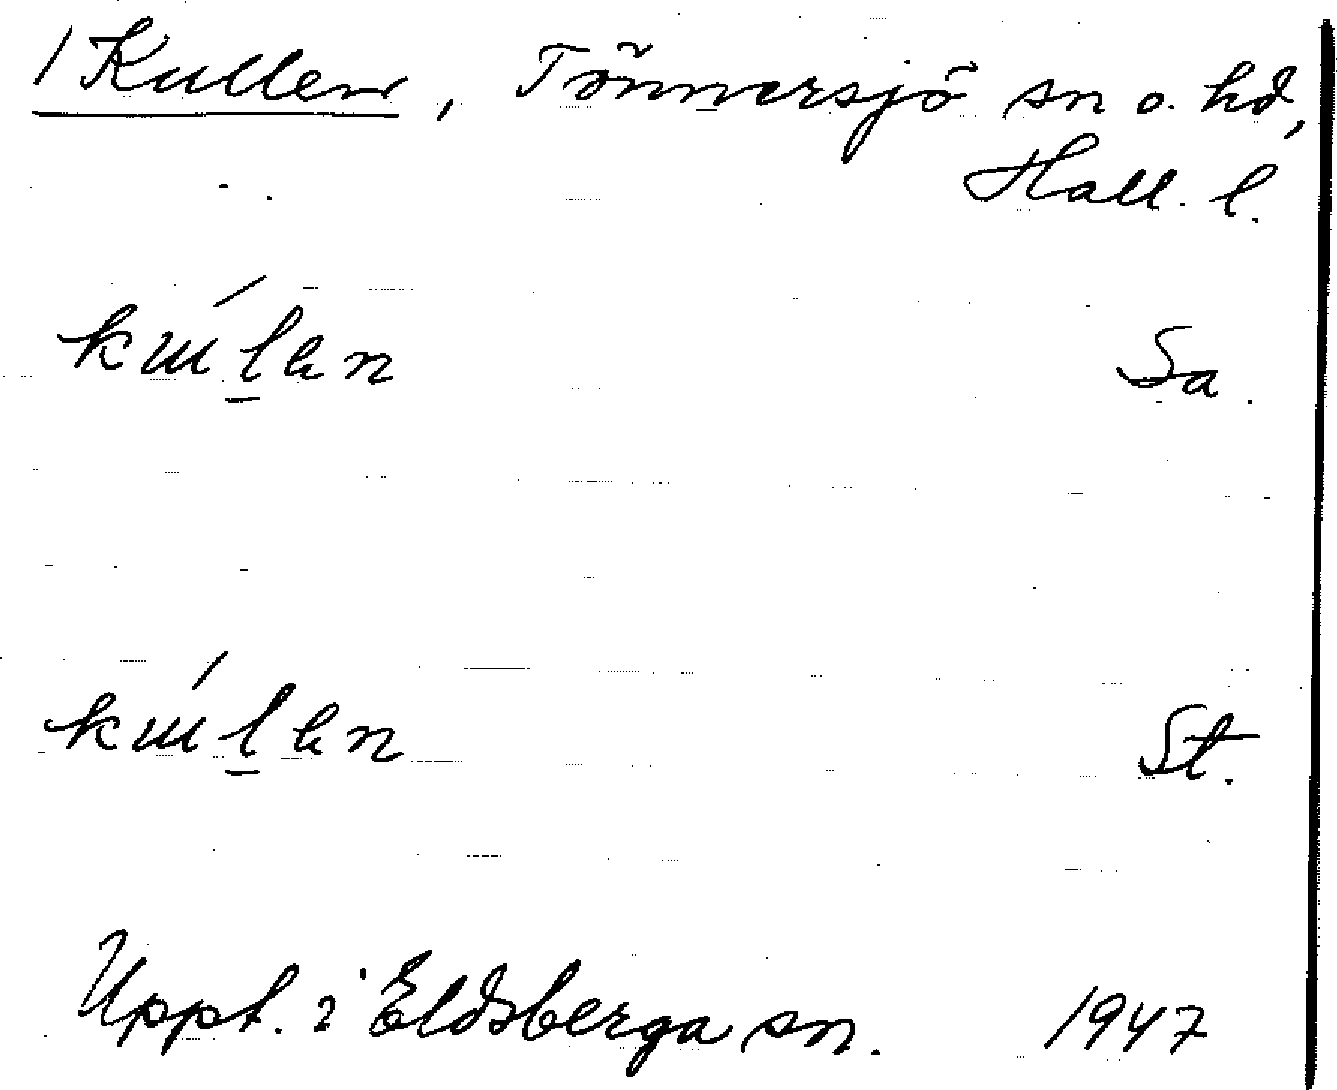 / Kullen, Tönnersjö sn o. hd,
Hall. l.
kúlen Sa.
kúlen St.
Uppt. i Eldsberga sn. 1947